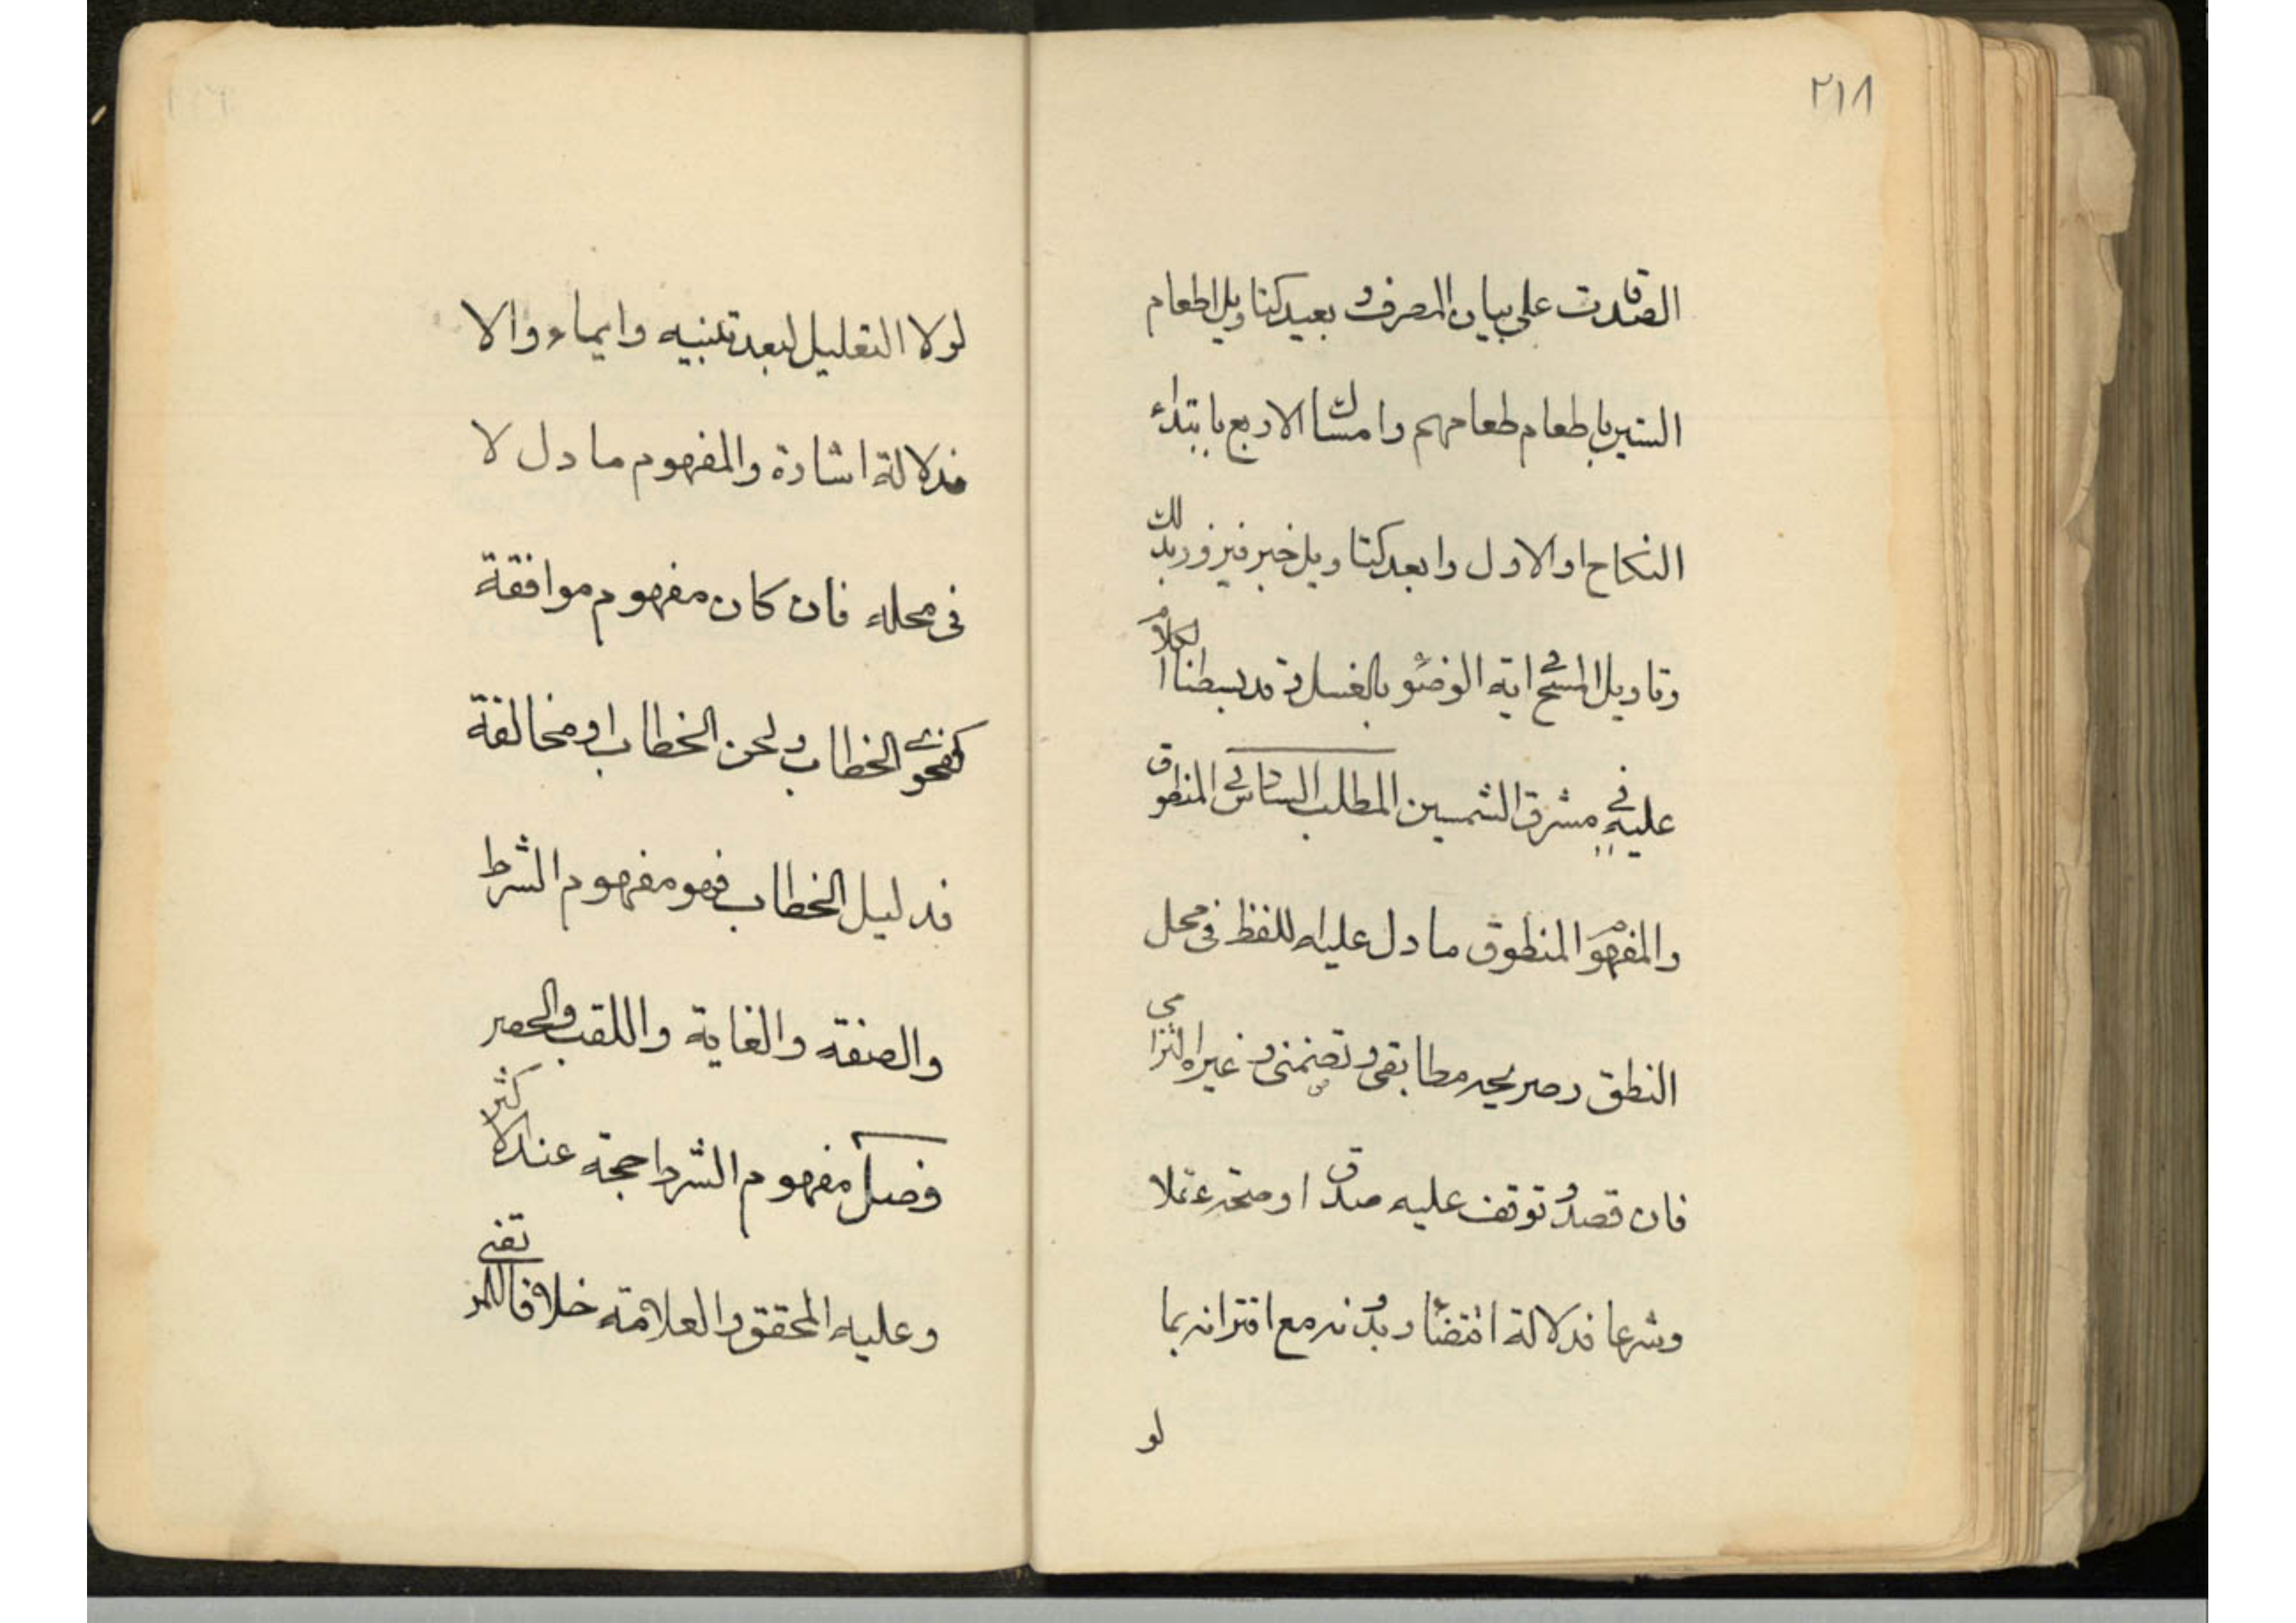 ٢١٨
الصدقات على بيان المصرف و بعيد كتاويل اطعام
الستين باطعام طعامهم وامساك الاربع بابتداء
النكاح او الاول وابعد كتاويل خبر فيروز بذلك
وتاويل المسح فى اية الوضوء بالغسل و قد بسطنا الكلام
عليه فى مشرق الشمسين المطلب السادس فى المنطوق
والمفهوم المنطوق ما دل عليه اللفظ فى محل
النطق وصريحه مطابقى و تضمنى و غيره التزامى
فان قصد و توقف عليه صدق او صحة عقلا
وشرعا فدلالة اقتضاء و بدونه مع اقترانه بما
لو
لولا التعليل لبعد تنبيه وايماء والا
فدلالة اشارة والمفهوم ما دل لا
فى محله فان كان مفهوم موافقة
كفحوى الخطاب ولحن الخطاب او مخالفة
فدليل الخطاب فهو مفهوم الشرط
والصفة والغاية واللقب والحصر
فصل مفهوم الشرط حجة عند الاكثر
وعليه المحقق والعلامة خلافا للمرتضى